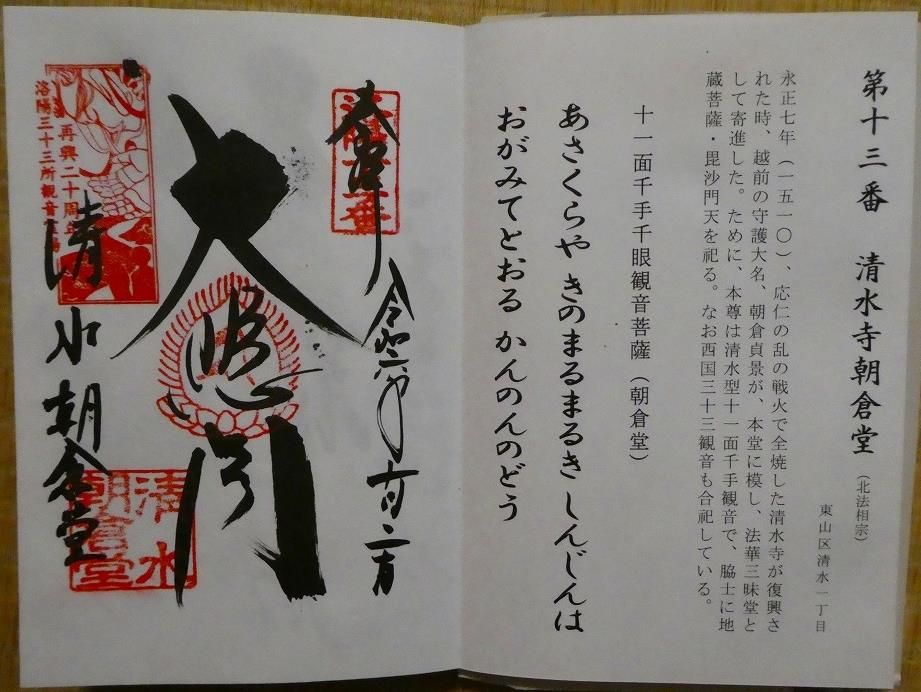 第十三番　清水寺朝倉堂（北法相宗）
東山区清水一丁目
永正七年（一五一〇）、応仁の乱の戦火で全焼した清水寺が復興さ
れた時、越前の守護大名、朝倉貞景が、本堂に模し、法華三昧堂と
して寄進した。ために、本尊は清水型十一面千手観音で、脇士に地
蔵菩薩・毘沙門天を祀る。なお西国三十三観音も合祀している。
十一面千手千眼観音菩薩（朝倉堂）
あさくらや きのまるまるき しんじんは
おがみてとおる かんのんのどう
奉拝
令和六年
大悲閣
清水
朝倉堂
再興二十周年
洛陽三十三所観音
清水
朝倉堂